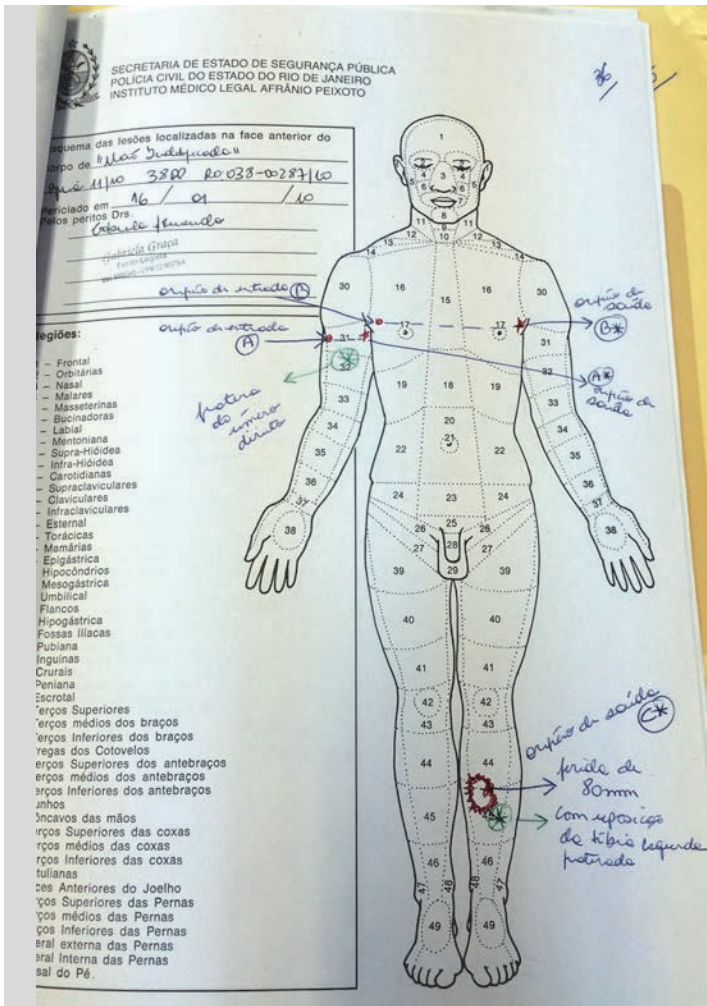 SECRETARIA DE ESTADO DE SEGURANÇA PÚBLICA
POLÍCIA CIVIL DO ESTADO DO RIO DE JANEIRO
INSTITUTO MÉDICO LEGAL AFRÂNIO PEIXOTO
36
quema das lesões localizadas na face anterior do
orpo de
11/10 38 RO 038-00287/10
Periciado em 16 / 01 /10
Pelos peritos Drs.
Gabriela Graça
Perito Legista
orifício de entrada B
orifício de entrada A
orifício de saída B*
A* orifício de saída
fratura do úmero direito
orifício de saída C*
ferida de 80mm
com exposição da tíbia esquerda fraturada
egiões:
– Frontal
– Orbitárias
– Nasal
– Malares
– Masseterinas
– Bucinadoras
– Labial
– Mentoniana
– Supra-Hióidea
– Infra-Hióidea
– Carotidianas
– Supraclaviculares
– Claviculares
– Infraclaviculares
– Esternal
– Torácicas
– Mamárias
– Epigástrica
Hipocôndrios
Mesogástrica
Umbilical
Flancos
Hipogástrica
Fossas Ilíacas
Pubiana
Inguinas
Crurais
Peniana
Escrotal
erços Superiores
erços médios dos braços
erços Inferiores dos braços
regas dos Cotovelos
erços Superiores dos antebraços
erços médios dos antebraços
erços Inferiores dos antebraços
unhos
ôncavos das mãos
rços Superiores das coxas
rços médios das coxas
rços Inferiores das coxas
tulianas
ces Anteriores do Joelho
rços Superiores das Pernas
rços médios das Pernas
rços Inferiores das Pernas
eral externa das Pernas
eral Interna das Pernas
sal do Pé.
1
2 2
4 3 4
5 6 6 5
8
9
11 10 11
12 12
13 13
14 14
30 16 15 16 30
17 17
31 31
32 32
19 18 19
33 33
20
34 21 34
35 22 22 35
36 36
24 23 24
37 37
25
38 26 26 38
27 28 27
29
39 39
40 40
41 41
42 42
43 43
44 44
45 45
46 46
47 48 48 47
49 49